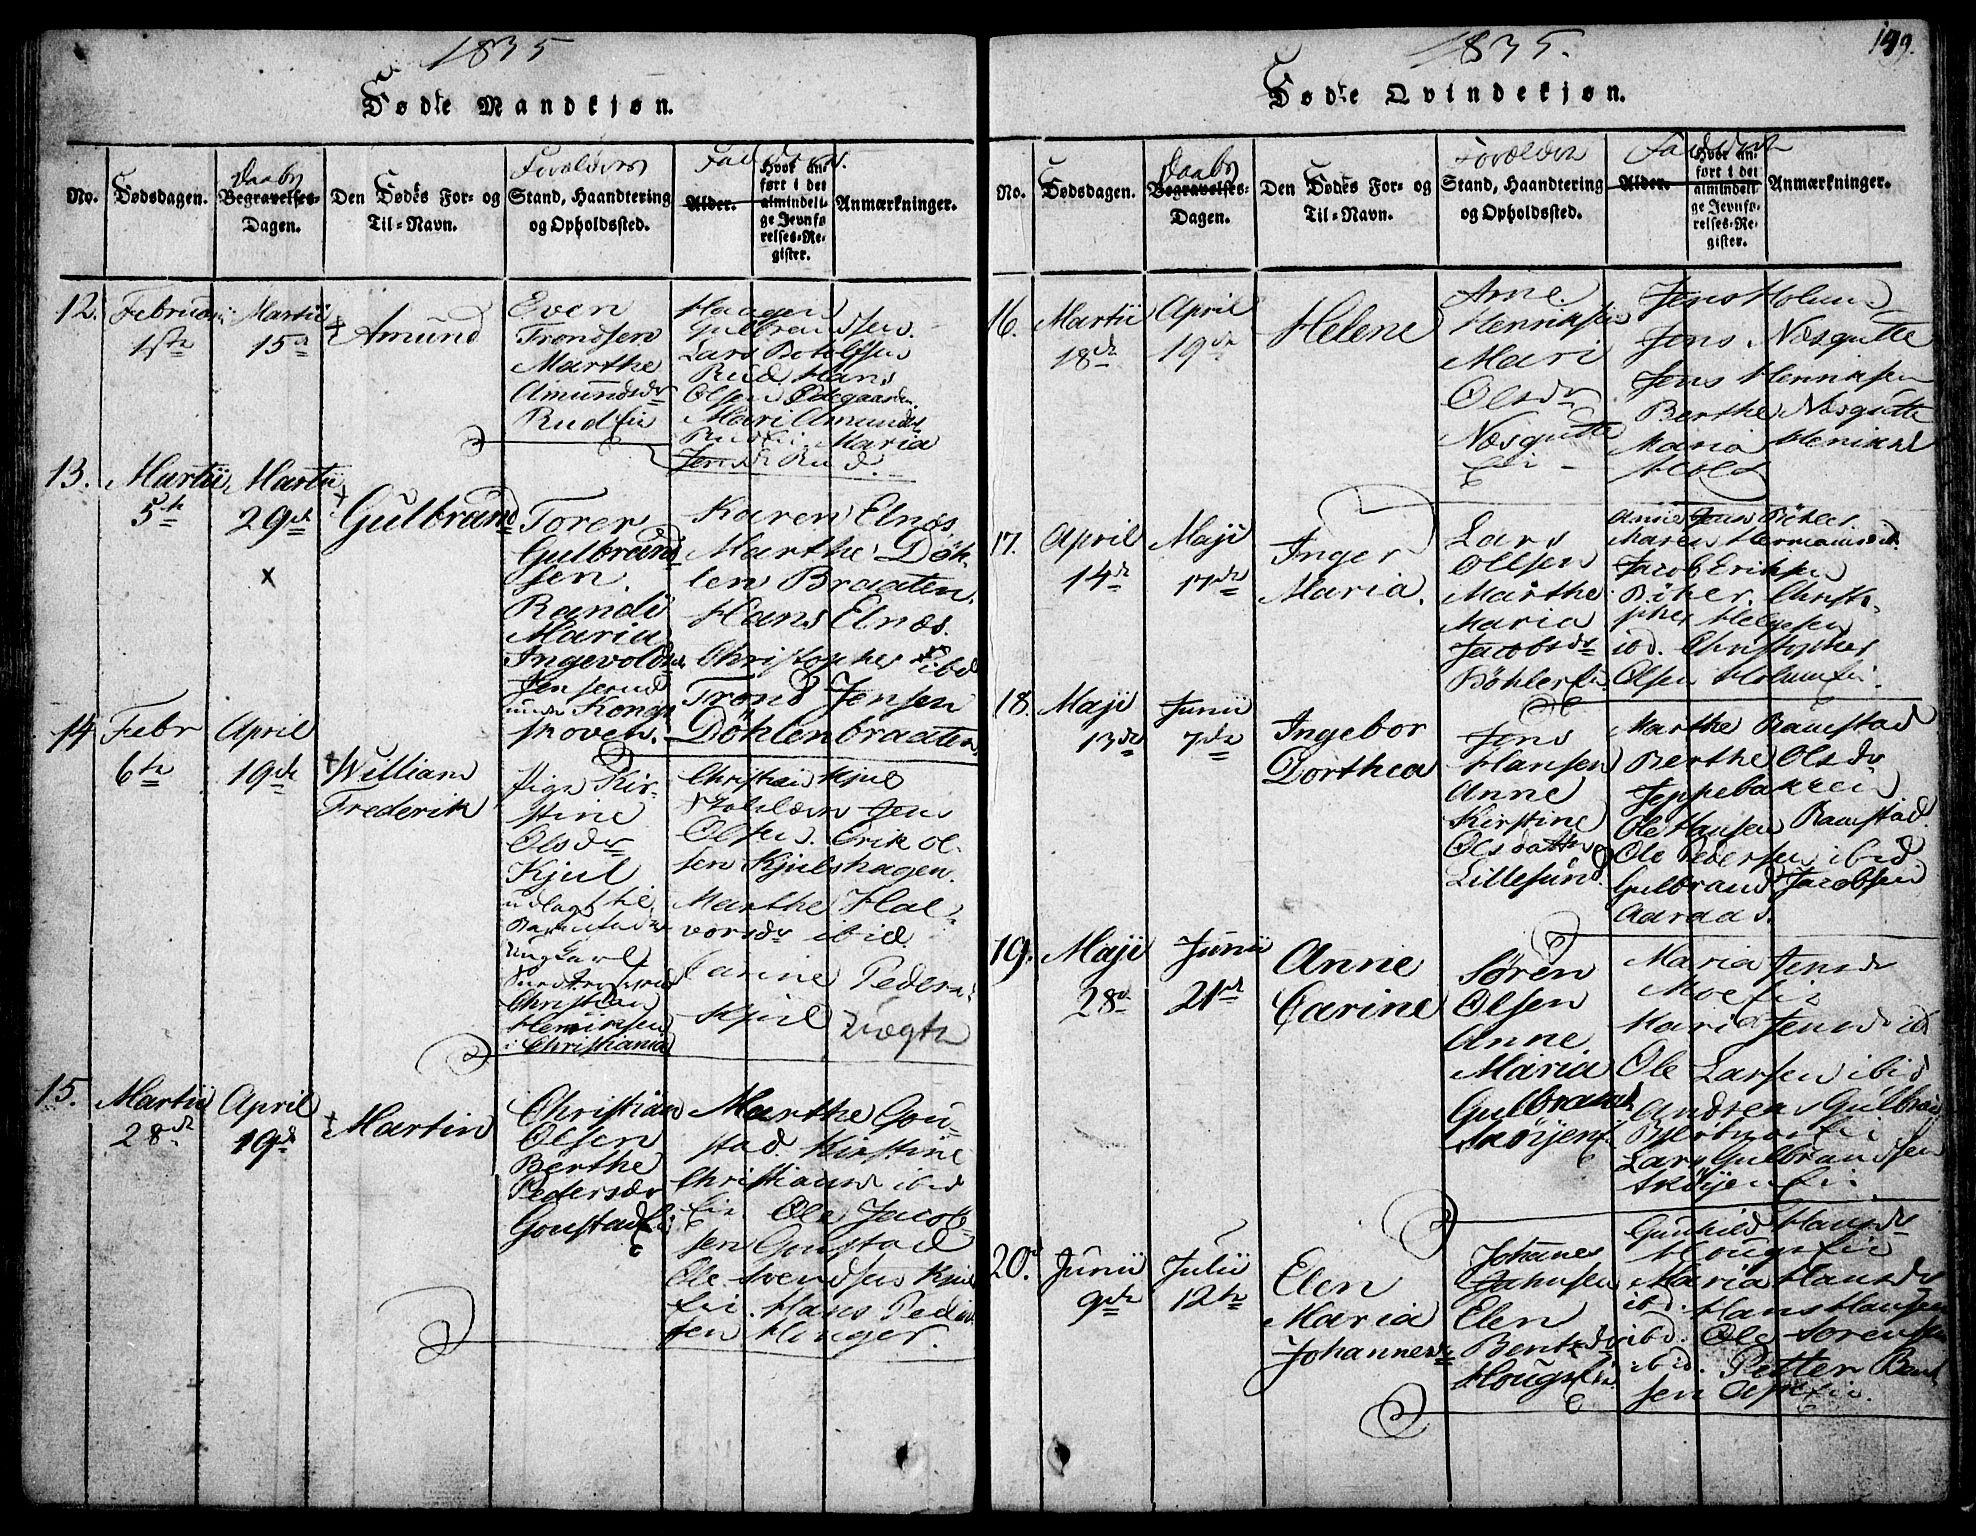 1835
Fødte Mandkjøn.
No.
Fødselsdagen.
Daabs
Begravelses-
Dagen.
Den Fødtes For- og
Til-Navn.
Forældres
Stand, Haandtering
og Opholdssted.
Faddere.
Alder.
Hvor an-
ført i det
almindeli-
ge Jevnfø-
relses-Re-
gister.
Anmærkninger.
12.
Februar
1ste
Martii
15de
Amund
Even
Trondsen
Marthe
Amundsdr
Rud
Haagen
Gulbrandsen
Lars
Rud Hans
Olsen Ødegaarden
Mari Amundsdr
Maria
Jensdr Rud.
13.
Martii
5te
Martii
29de
x
Gulbrand
Torer
Gulbrand
sen
Randi
Maria
Ingevoldsdr
Jenserud
under Kongs
proven.
Karen Elnæs,
Marthe Døh-
len Braaten.
Hans Elnæs.
Christopher ibd
Trond Jensen
Döhlenbraaten
14
Febr
6te
April
19de
William
Frederik
Pige Kir-
stine
Olsdr
Kjul
udlagt til
Barnefader
Ung Carl
Christian
Henriksen
i Christiania
Christian Kjul
Jens
Olsen. Erik Ol-
sen Kjulshagen.
Marthe Hal-
vorsdr ibid.
Carine Peders
Kjul
uægte
15.
Martii
28de
April
19de
Martin
Christian
Olsen
Berthe
Pedersdr
Goustad
Marthe Gou-
stad. Kirstine
Christiansd ibid
Ole Jacob-
sen Goustad
Ole Svendsen Kjul
Hans Peder
sen Houger.
1835.
199.
Fødte Qvindekjøn.
No.
Fødselsdagen.
Daabs
Begravelses-
Dagen.
Den Fødtes For- og
Til-Navn.
Forældres
Stand, Haandtering
og Opholdssted.
Faddere
Alder.
Hvor an-
ført i det
almindeli-
ge Jevnfø-
relses-Re-
gister.
Anmærkninger.
16.
Martii
18de
April
19de
Helene
Arne
Henriksen
Mari
Olsdr
Næsgutte
Jens Holum
Jens Næsgutte
Jens Henriksen
Berthe Næsgutte
Maria
17.
April
14de
Maji
17de
Inger
Maria.
Lars
Ollsen
Marthe
Maria
Jacobsdr
Böhler
Anne Jens Böhler.
Maren Hermansd.
Jacob Eriksen
Böhler. Christo-
pher Helgesen
ibd. Christopher
Olsen Holum
18.
Maji
13de
Junii
7de
Ingebor
Dorthea
Jens
Hansen
Anne
Kirstine
Olsdatter
Lillesund.
Marthe Ramstad
Berthe Olsdr
Jeppebakken
Ole Hansen Ramstad.
Ole Pedersen ibid
Gulbrand Jacobsen
Aaraas.
19.
Maji
28de
Junii
21de
Anne
Carine
Søren
Olsen
Anne
Maria
Gulbrands
Skøyen
Maria Jensdr
Moe
Mari Jensdr ibd
Ole Larsen ibid
Andreas Gulbrands
Lars Gulbrandsen
Skøyen
20.
Junii
9de
Julii
12te
Elen
Maria
Johannesdr
Johannes
Elen
Bentsdr
Houg
Gunhild Hansdr
Houg
Maria Hansdr
ibd. Hans Hansen
ibd. Ole Sørensen
ibid. Petter Bent
sen